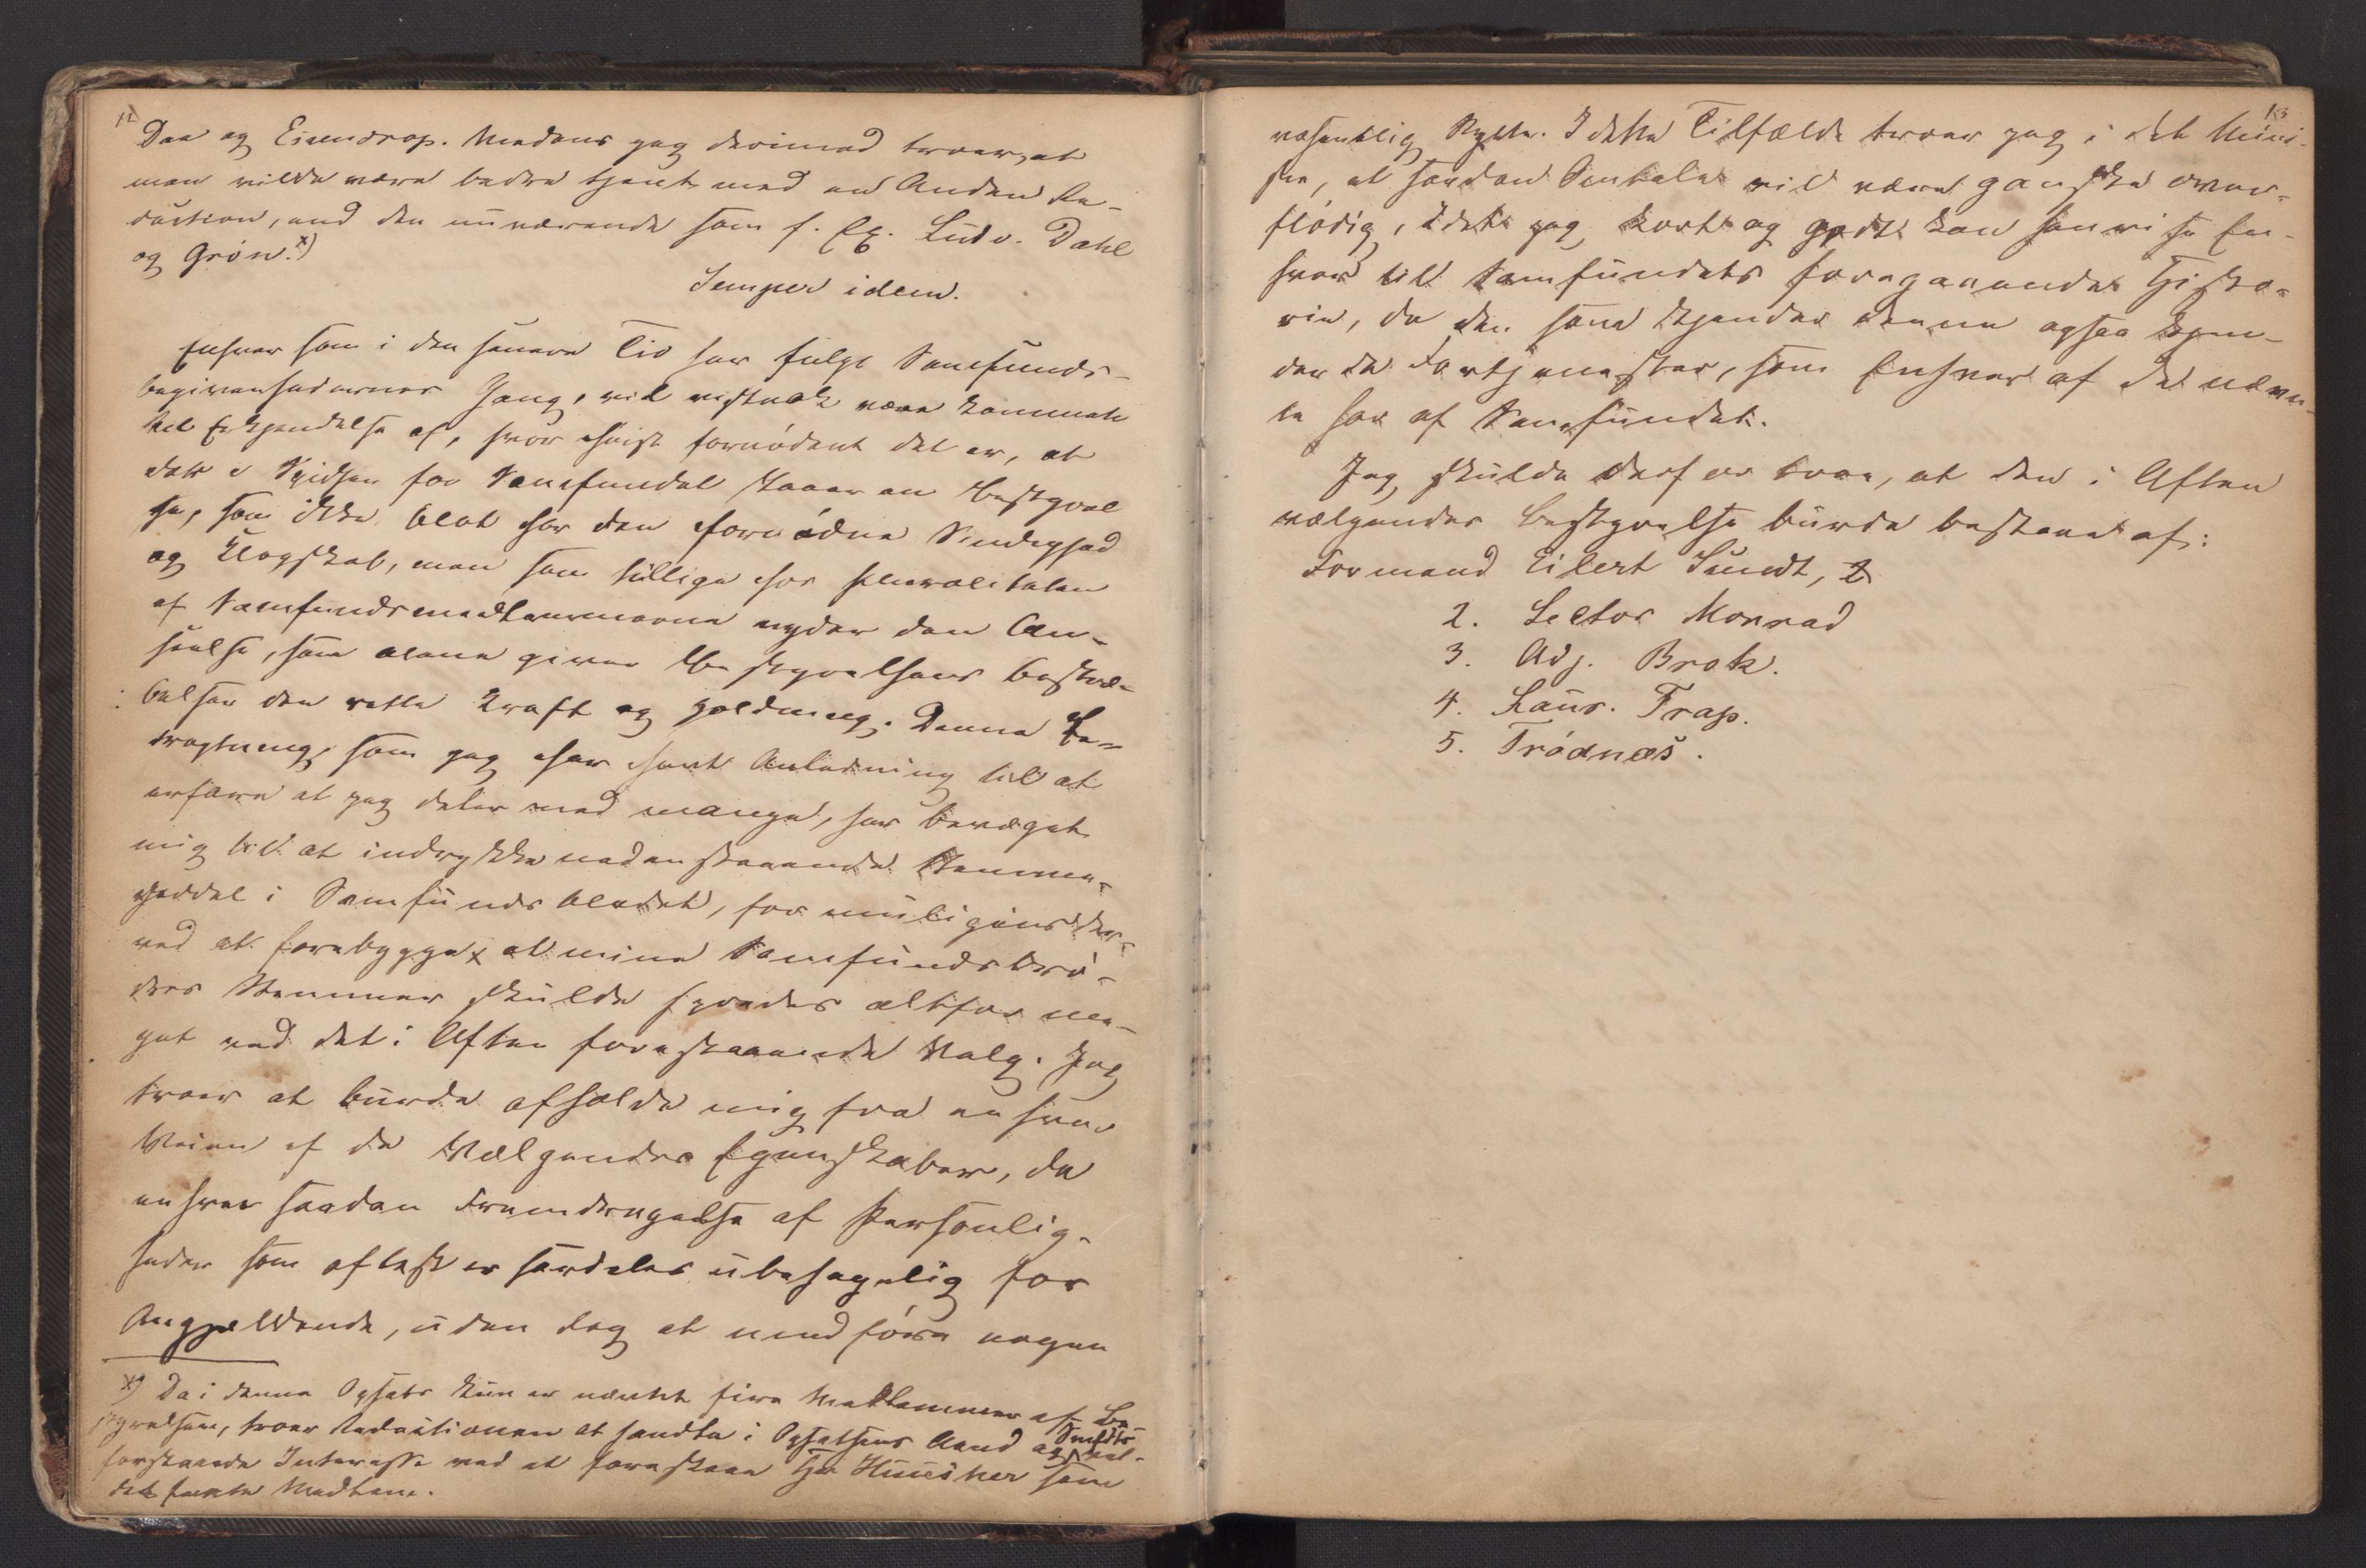 12
Daa og Eisendrap. Medens jeg derimod troer, at
man vilde være bedre tjent med en Anden Re-
daction, end den nuværende som f. Ex. Ludv. Dahl
og Grøn. x)
Semper idem.
Enhver som i den senere Tid har fulgt Samfunds-
begivenhedernes Gang, vil vistnok være kommen
til Erkjendelse af, hvor høist fornødent det er, at
der i Spidsen for Samfundet staaer en Bestyrel
se, som ikke blot har den fornødne Dygtighed
og Klogskab, men som tillige hos Pluraliteten
af Samfundsmedlemmerne nyder den An-
seelse, som alene giver Bestyrelsens Bestræ-
belser den rette Kraft og Holdning. Denne Be-
tragtning, som jeg har havt Anledning til at
erfare at jeg deler med mange, har bevæget
mig til at indrykke nedenstaaende Stemme-
seddel i Samfundsbladet, for muligens der-
ved at forebygge, at mine Samfundsbrø-
dres Stemmer skulde spredes altfor me-
get ved det i Aften forestaaende Valg. Jeg
troer at burde afholde mig fra en
af de Vælgendes Egenskaber, da
enhver saadan Fremdragelse af Personlig-
heder som oftest er særdeles ubehagelig for
Angjældende, uden dog at medføre nogen
x) Da i denne Opsats kun er nævnt fire Medlemmer af Be-
styrelsen, troer Redactionen at handle i Opsatsens Aand og Samfdts vel-
forstaaede Interesse ved at foreslaae Hr. som
det femte Medlem.
13
væsentlig Nytte. I dette Tilfælde troer jeg i det Mind-
ste, at saadan Omtale vil være ganske over-
flødig, idet jeg kort og godt kan henvise En-
hver til Samfundets foregaaende Histo-
rie, da den som kjender denne ogsaa kjen-
der de Fortjenester, som Enhver af de nævn-
te har af Samfundet.
Jeg skulde derfor troe, at den i Aften
vælgendes Bestyrelse burde bestaae af:
Formand Eilert Sundt,
2. Lector Monrad
3. Adj. Brok.
4. Laur. Trap.
5. Trødnæs.